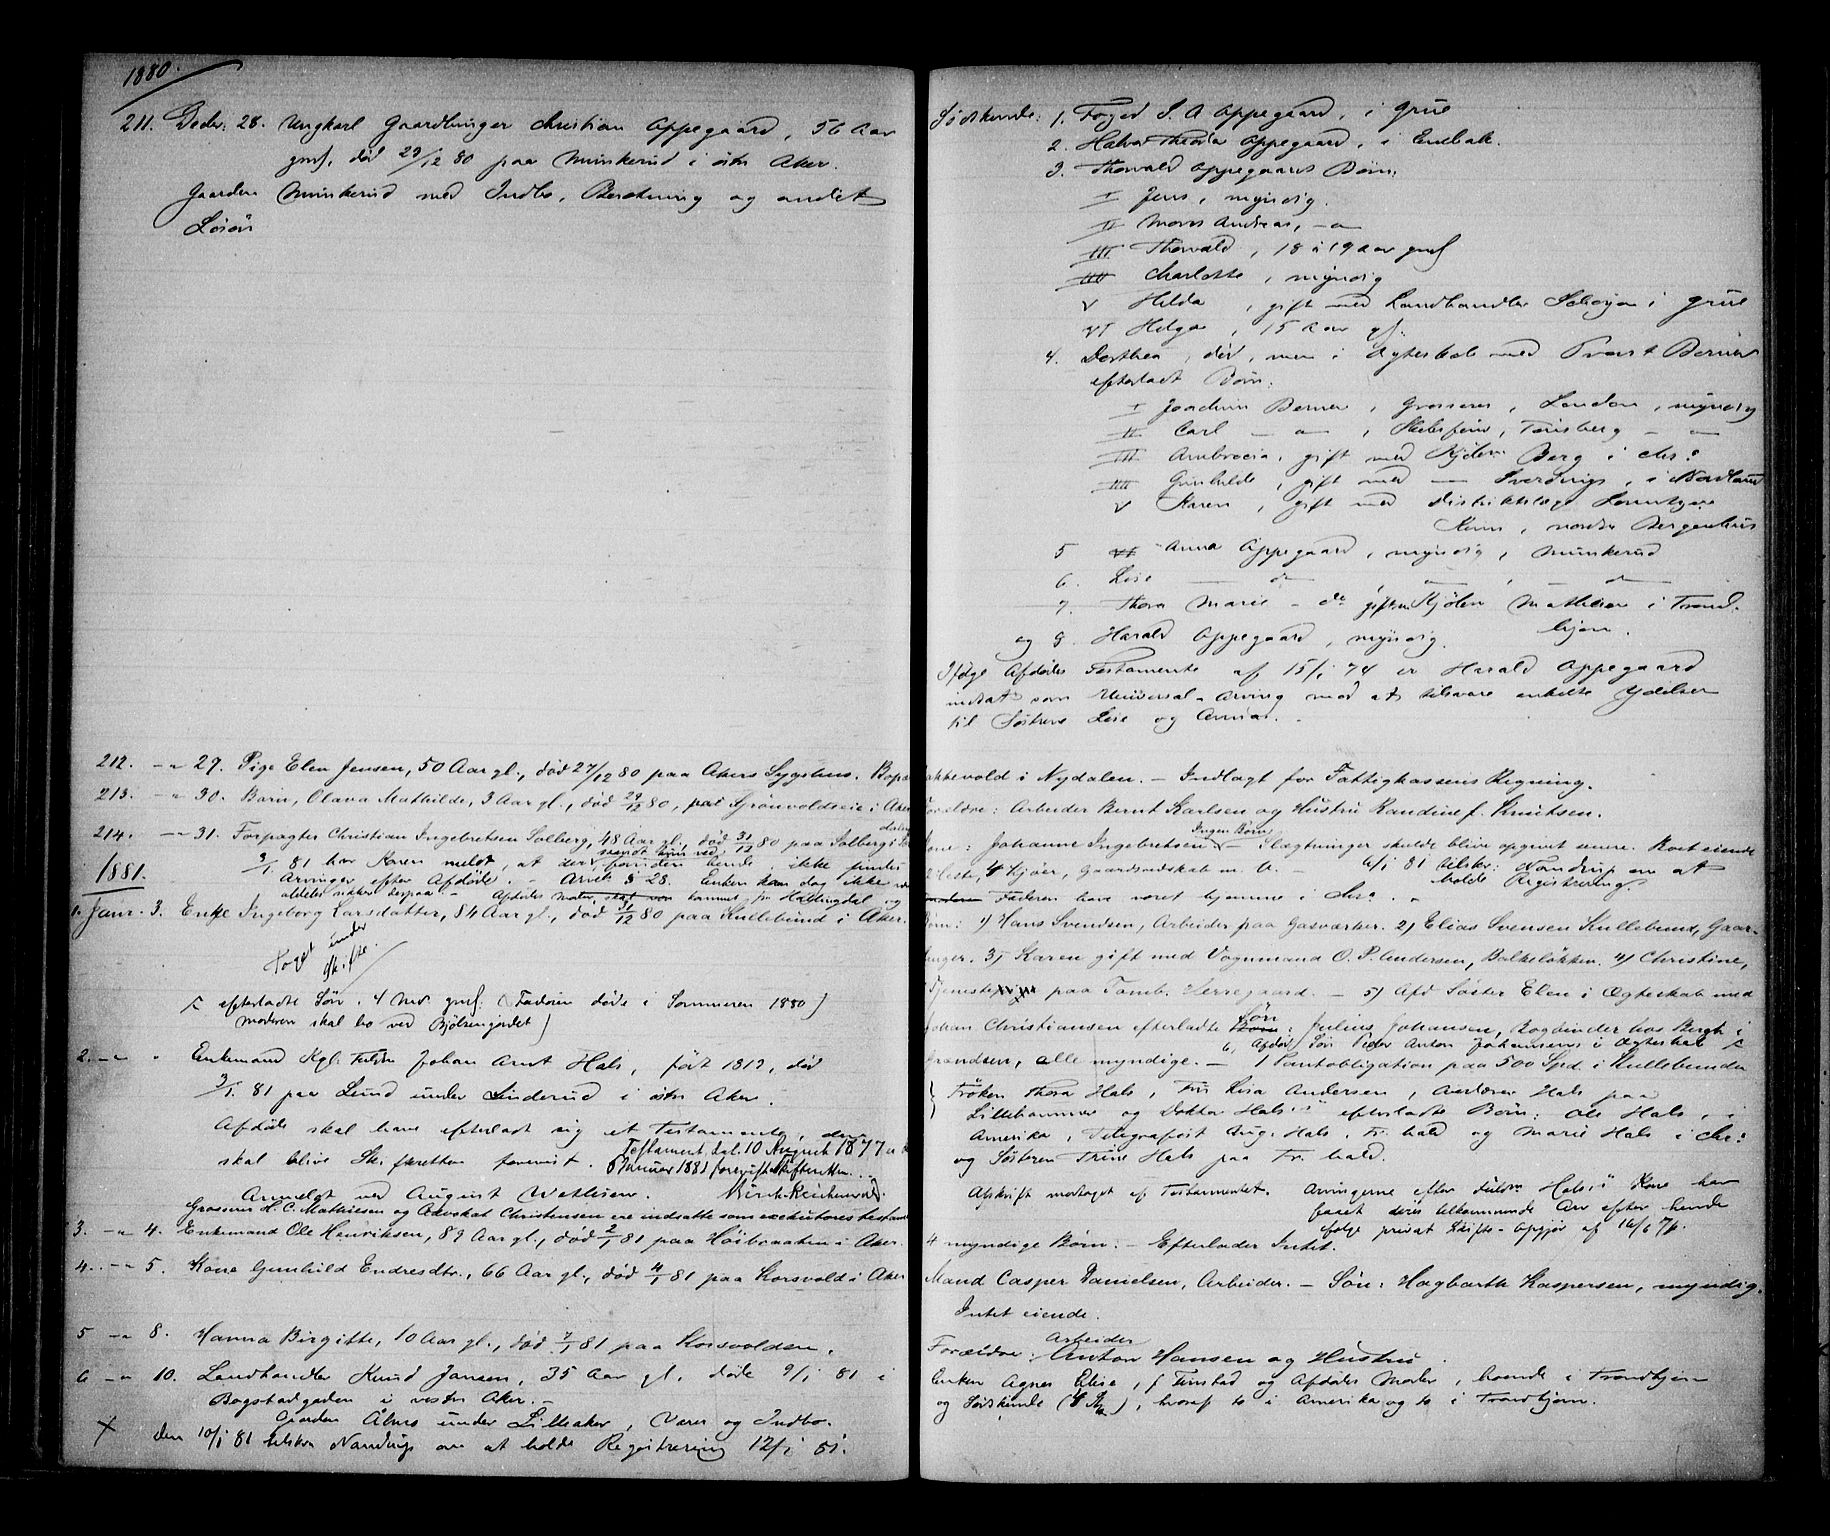 1880.
211. Decbr. 28. Ungkarl Gaardbruger Christian Oppegaard, 56 Aar
gml, død 23/12 80 paa Munkerud i østre Aker.
Gaarden Munkerud med Indbo, Besætning og andet
Løsøre
212. -"- 29. Pige Elen Jensen, 50 Aar gl., død 27/12 80 paa Akers Sygehus. Bopæl
213. -"- 30. Barn, Olava Mathilde, 3 Aar gl., død 29/12 80, paa Grønvoldseie i Aker
214. -"- 31. Forpagter Christian Ingebretsen Solberg, 48 Aar gl., død 31/12 80 paa Solberg i
3/1 81 har Konen meldt, at der foruden hende ikke findes
Arvinger efter Afdøde. - Arvel § 28. Enken kan dog ikke
aldeles sikker herpaa. - Afdødes Moder kommet fra Hallingdal og
1881.
1. Janr. 3. Enke Ingeborg Larsdatter, 84 Aar gl., død 31/12 80 paa Kullebund i Aker.
Taget under
Skifte.
efterladte Søn, 4 Mdr. gml. (Faderen døde i Sommeren 1880)
Moderen skal bo ved Bjølsenjordet)
2. -"- " Enkemand Kgl. Fuldm Johan Arnt Hals, født 1812, død
3/1 81 paa Lund under Linderud i østre Aker.
Afdøde skal have efterladt sig et Testamente, der
skal blive Skifteretten forevist. Testament dat. 10 August 1877
Januar 1881 forevist Skifteretten.
Anmeldt ved August Wetlesen.
Grosserer H. C. Mathiesen og Advokat Christensen ere indsatte som executores testam
3. -"- 4. Enkemand Ole Henriksen, 89 Aar gl., død 2/1 81 paa Høibraaten i Aker.
4. -"- 5. Kone Gunhild Endresdtr., 66 Aar gl., død 4/1 81 paa Korsvold i Aker
5 -"- 8. Hanna Birgitte, 10 Aar gl., død 7/1 81 paa Korsvolden.
6 -"- 10. Landhandler Knud Jansen, 35 Aar gl, døde 9/1 81 i
Bogstadgaden i vestre Aker. -
Gaarden Åbros under Lilleaker, Varer og Indbo.
X den 10/1 81 tilskr Nandrup om at holde Registrering 12/1 81.
Sødskende: 1. Foged S. A Oppegaard, i Grue
2. Halvor Theodor Oppegaard, i Enebak.
3. Thorvald Oppegaards Børn:
I Jens, myndig.
II Mons Andreas, -"-
III Thorvald, 18 à 19 Aar gml
IIII Charlotte, myndig
V Hilda, gift med Landhandler Schøyen i Grue
VI Helga, 15 Aar gl.
4. Dorthea, død, men i Ægteskab med Provst Berner
efterladt Børn:
I Joachim Berner, Grosserer, London, myndig
II Carl -"-, Skibsfører, Tønsberg -"-
III Ambrocia, gift med Kjøbm Berg i Chra
IIII Gunhilde, gift med — Sverdrup, i Nordland
V Karen, gift med Distriktslæge
Kinn, nordre Bergenhus
5 Anna Oppegaard, myndig, Munkerud
6. Lise -"- -"- -"-
7. Thora Marie - do gift m Kjøbm Mathisen i Trond-
hjem.
og 8. Harald Oppegaard, myndig.
Ifølge Afdødes Testamente af 15/1 74 er Harald Oppegaard
indsat som Universal-Arving mod at tilsvare enkelte Ydelser
til Søstrene Lise og Anna.
akkevold i Nydalen. - Indlagt for Fattigkassens Regning.
Forældre: Arbeider Bernt Karlsen og Hustru Randine f. Knutsen.
Kone: Johanne Ingebretsen - Ingen Børn - Slægtninger skulde blive opgivet senere. Boet eiende
2 Heste, 4 Kjøer, Gaardsredskab m. V. - 6/1 81 tilskr: Nandrup om at
holde Registrering
Faderen have været hjemme i Chra.
Børn: 1) Hans Svendsen, Arbeider paa Gasværket. 2) Elias Svensen Kullebund, Gaar-
bruger. 3) Karen gift med Vognmand O. P. Andersen, Balkeløkken. 4) Christine,
Tjenestepige paa Tomb. Herregaard. - 5) Afd Søster Elen i Ægteskab med
Johan Christiansen efterladte Søn: Julius Johansen, Bogbinder hos Bergh i
6, Afdød Søn Peder Anton Johannesens i Ægteskab
Grandsen, alle myndige. - 1 Pantobligation paa 500 Spd. i Kullebunden
Frøken Thora Hals, Fru Lisa Andersen, Hals paa
Lillehammer og Doktor Hals's efterladte Børn: Ole Hals, i
Amerika, Telegrafist Aug. Hals, Fr.hald og Marie Hals i Chra
og Søsteren Trine Hals paa Fr.hald.
Afskrift modtaget af Testamentet. Arvingerne efter Fuldm Hals's Kone har
faaet deres tilkommende Arv efter hende
ifølge privat Skifte-Opgjør af 16/6 76.
4 myndige Børn. - Efterlader Intet.
Mand Casper Danielsen, Arbeider. - Søn: Hagbarth Kaspersen, myndig.
Intet eiende.
Forældre: Arbeider Anton Hansen og Hustru
Enken Agnes Elise, f Finstad og Afdødes Moder, boende i Trondhjem
og Sødskende, hvoraf to i Amerika og to i Trondhjem.